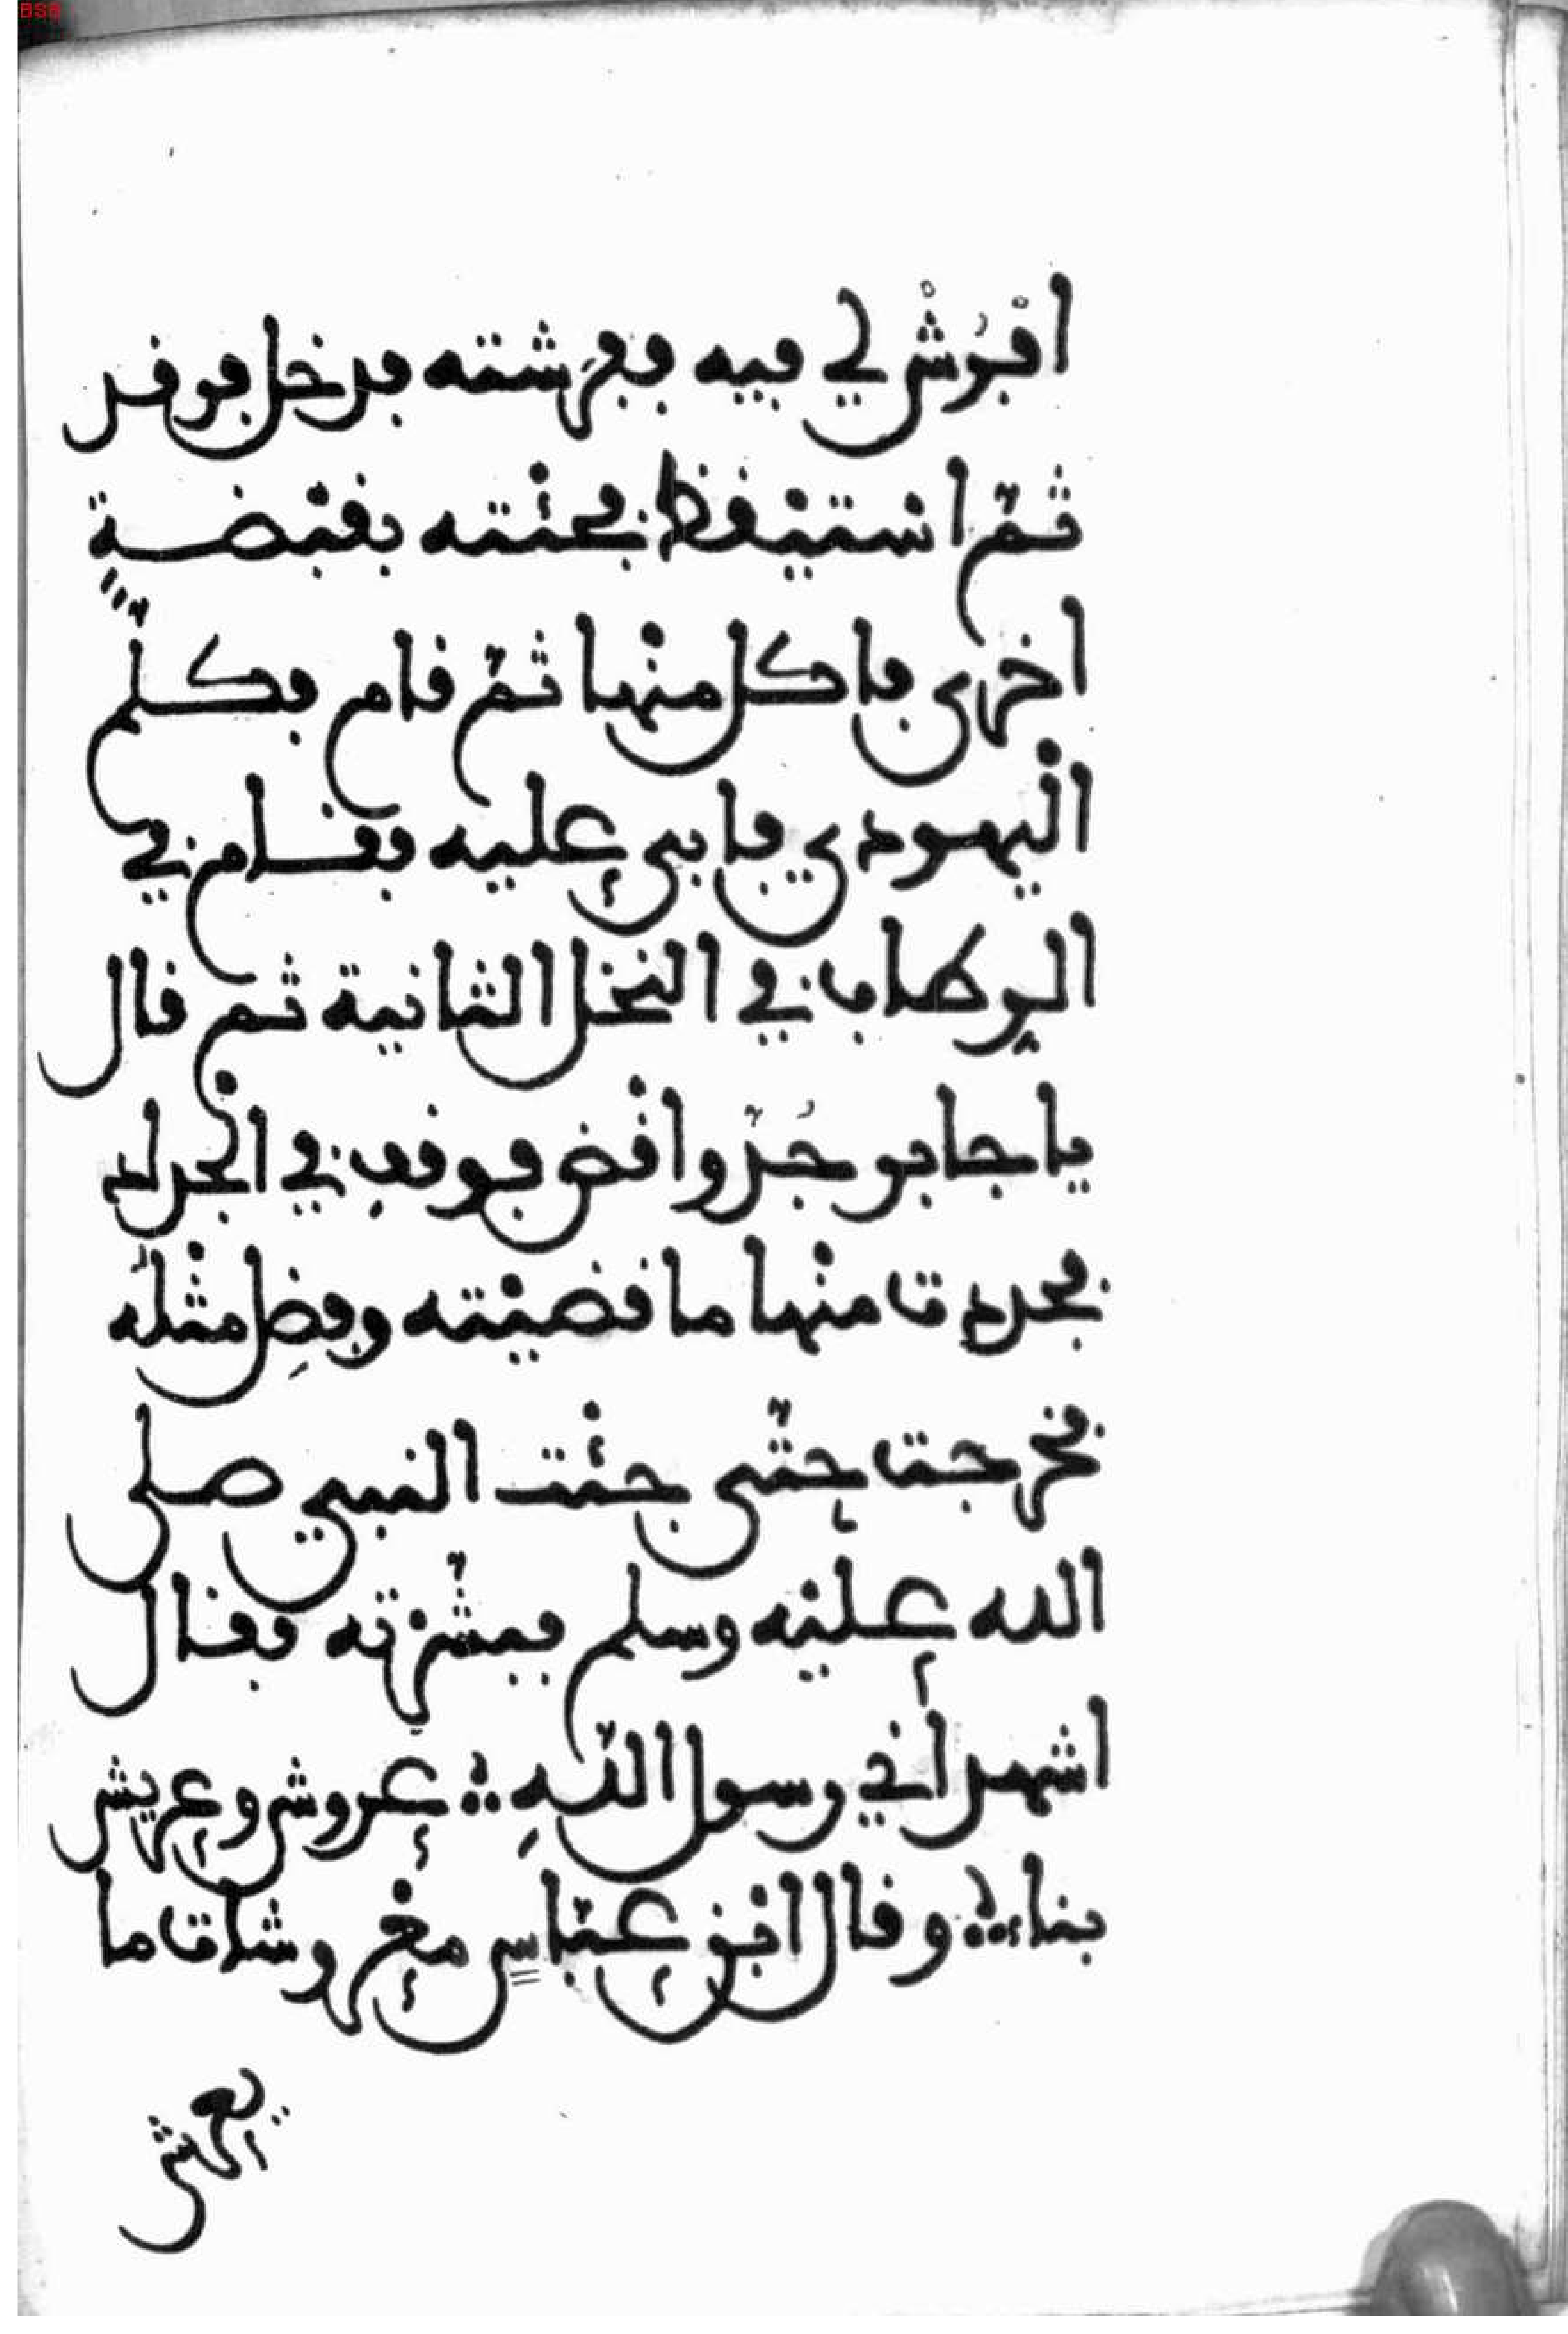 BSB
افْرُشْ لي فيه ففرشته فدخل فرقد
ثمّ استيْقظ فجئْته بقبْضةٍ
اخرى فاكل منْها ثمّ قام فكلّم
الْيهودي فابى عليه فقام في
الرِطاب في النخل الثانية ثم قال
يا جابر جُدّ واقْض فوقف في الْجداد
فجددت منْها ما قضيْته وفضِل مثْلُه
فخرجت حتّى جئْت النبي صلى
الله عليْه وسلم فبشّرْته فقال
اشهد أني رسول اللّهِ ؞ عروش وعريش
بناء ؞ وقال ابْن عبّاس معْروشات ما
يعرش